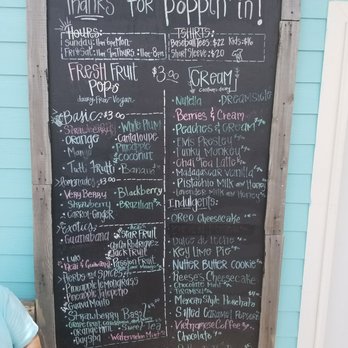 Thanks for Poppin' in!
HOURS:
Sunday: 11am 6pm Mon-
Fri+Sat:
TSHIRTS:
Baseball Tees $22 Kids $16
Short Sleeve $20
FRESH FRUIT
POPS
$3.00
dairy free Vegan
Basic $3.00
Strawberry
Orange
Mango
Tutti Frutti
White Plum
Cantaloupe
Pineapple
Coconut
Banana
Very Berry
Strawberry
Carrot-Ginger
Blackberry
Brazilian
Exotics
Guanabana
Star Fruit
Jack Fruit
Passion Fruit
Kiwi
Herbs and Spices
Pineapple Lemongrass
Pineapple Jalapeño
Guava Mojito
Strawberry Basil
Orange Mint
Sweet Tea
Watermelon Mint
CREAM
Nutella
Dreamsicle
Berries & Cream
Peaches & Cream
Elvis Presley
Funky Monkey
Chai Tea Latte
Madagascar Vanilla
Pistachio Milk and Honey
Lavender Milk and Honey
Indulgents:
Oreo Cheesecake
Dulce de Leche
Key Lime Pie
Nutter Butter Cookie
Reese's Cheesecake
Chocolate Mint
Tiramisu
Mexican Style Horchata
Salted Caramel Popcorn
Vietnamese Coffee
Chocolate